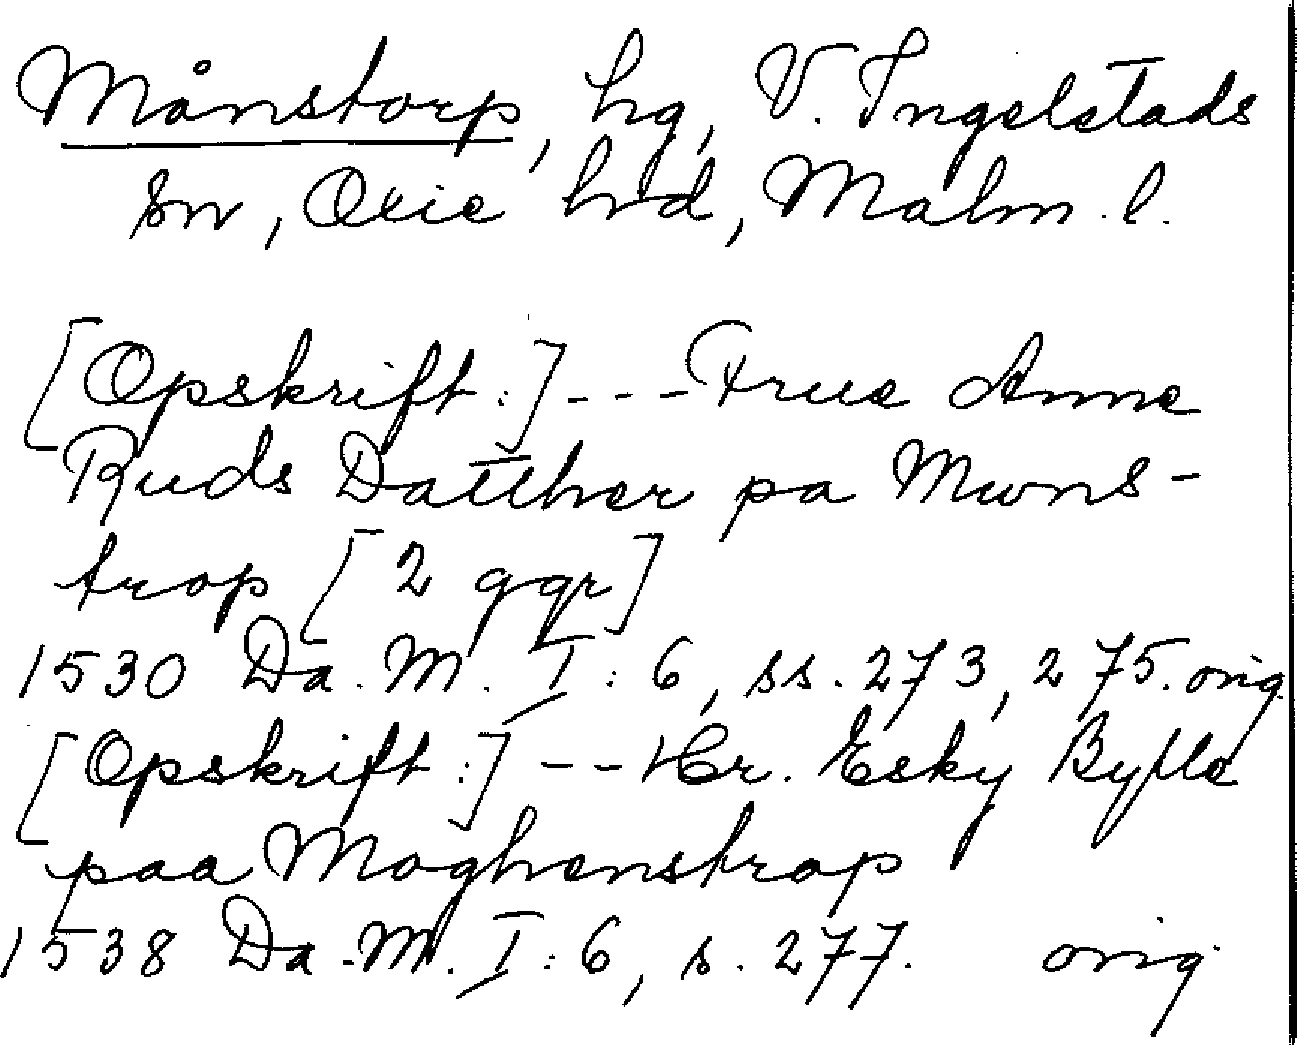 Månstorp, hg, V. Ingelstads
sn, Oxie hrd, Malm. l.
[Opskrift:] --- Frue Anne
Ruds Datther pa Mwns-
trop [2 ggr]
1530 Da. M. I: 6, ss. 273, 275. orig
[Opskrift:] -- Hr. Esky Bylle
paa Moghenstrop
1538 Da. M. I: 6, s. 277. orig